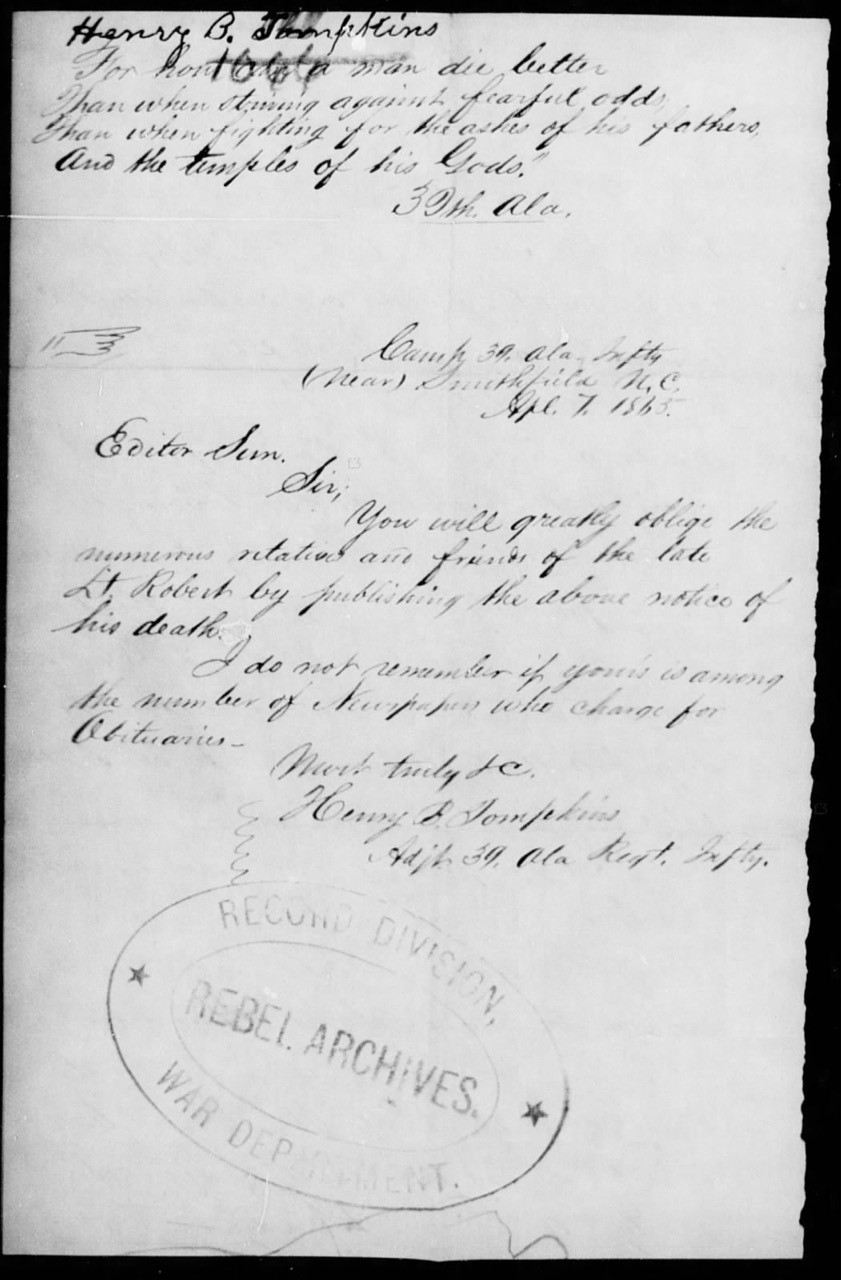 Henry B. Tompkins
For how can a man die better
Than when striving against fearful odds,
Than when fighting for the ashes of his fathers,
And the temples of his Gods."
39th. Ala.
Camp 39. Ala. Infty
(Near) Smithfield N.C.
Apl. 7. 1865.
Editor Sun.
Sir;
You will greatly oblige the
numerous relatives and friends of the late
Lt. Robert by publishing the above notice of
his death.
I do not remember if yours is among
the number of Newspapers who charge for
Obituaries -
Most truly &c.
Henry B. Tompkins
Adjt. 39. Ala Regt. Infty.
RECORD DIVISION,
REBEL ARCHIVES.
WAR DEPARTMENT.